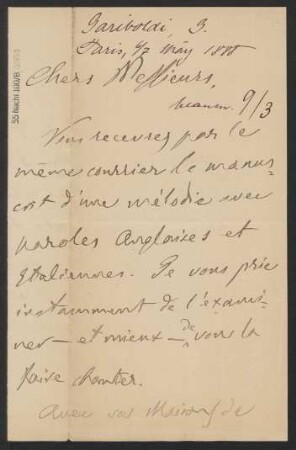 Gariboldi, 3.
Paris, 4/2 März 1888
Chers Messieurs,
9/3
Vous recevrez par le
même courrier le manus-
crit d'une mélodie avec
paroles Anglaises et
Italiennes. Je vous prie
instamment de l'exami-
ner — et mieux — de vous la
faire chanter.
Avec vos Maisons de
55 Nachl 100/B